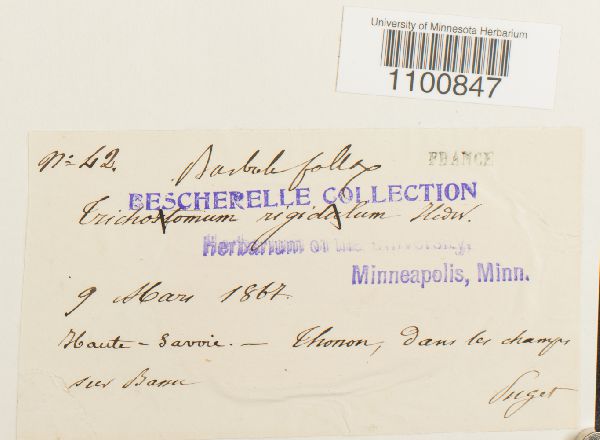 University of Minnesota Herbarium
1100847
No. 42. Barbula fallax
FRANCE
BESCHERELLE COLLECTION
Trichostomum rigidulum Hedw.
Herbarium of the University.
Minneapolis, Minn.
9 Mars 1867
Haute-Savoie. — Thonon, dans les champs
sur
Puget